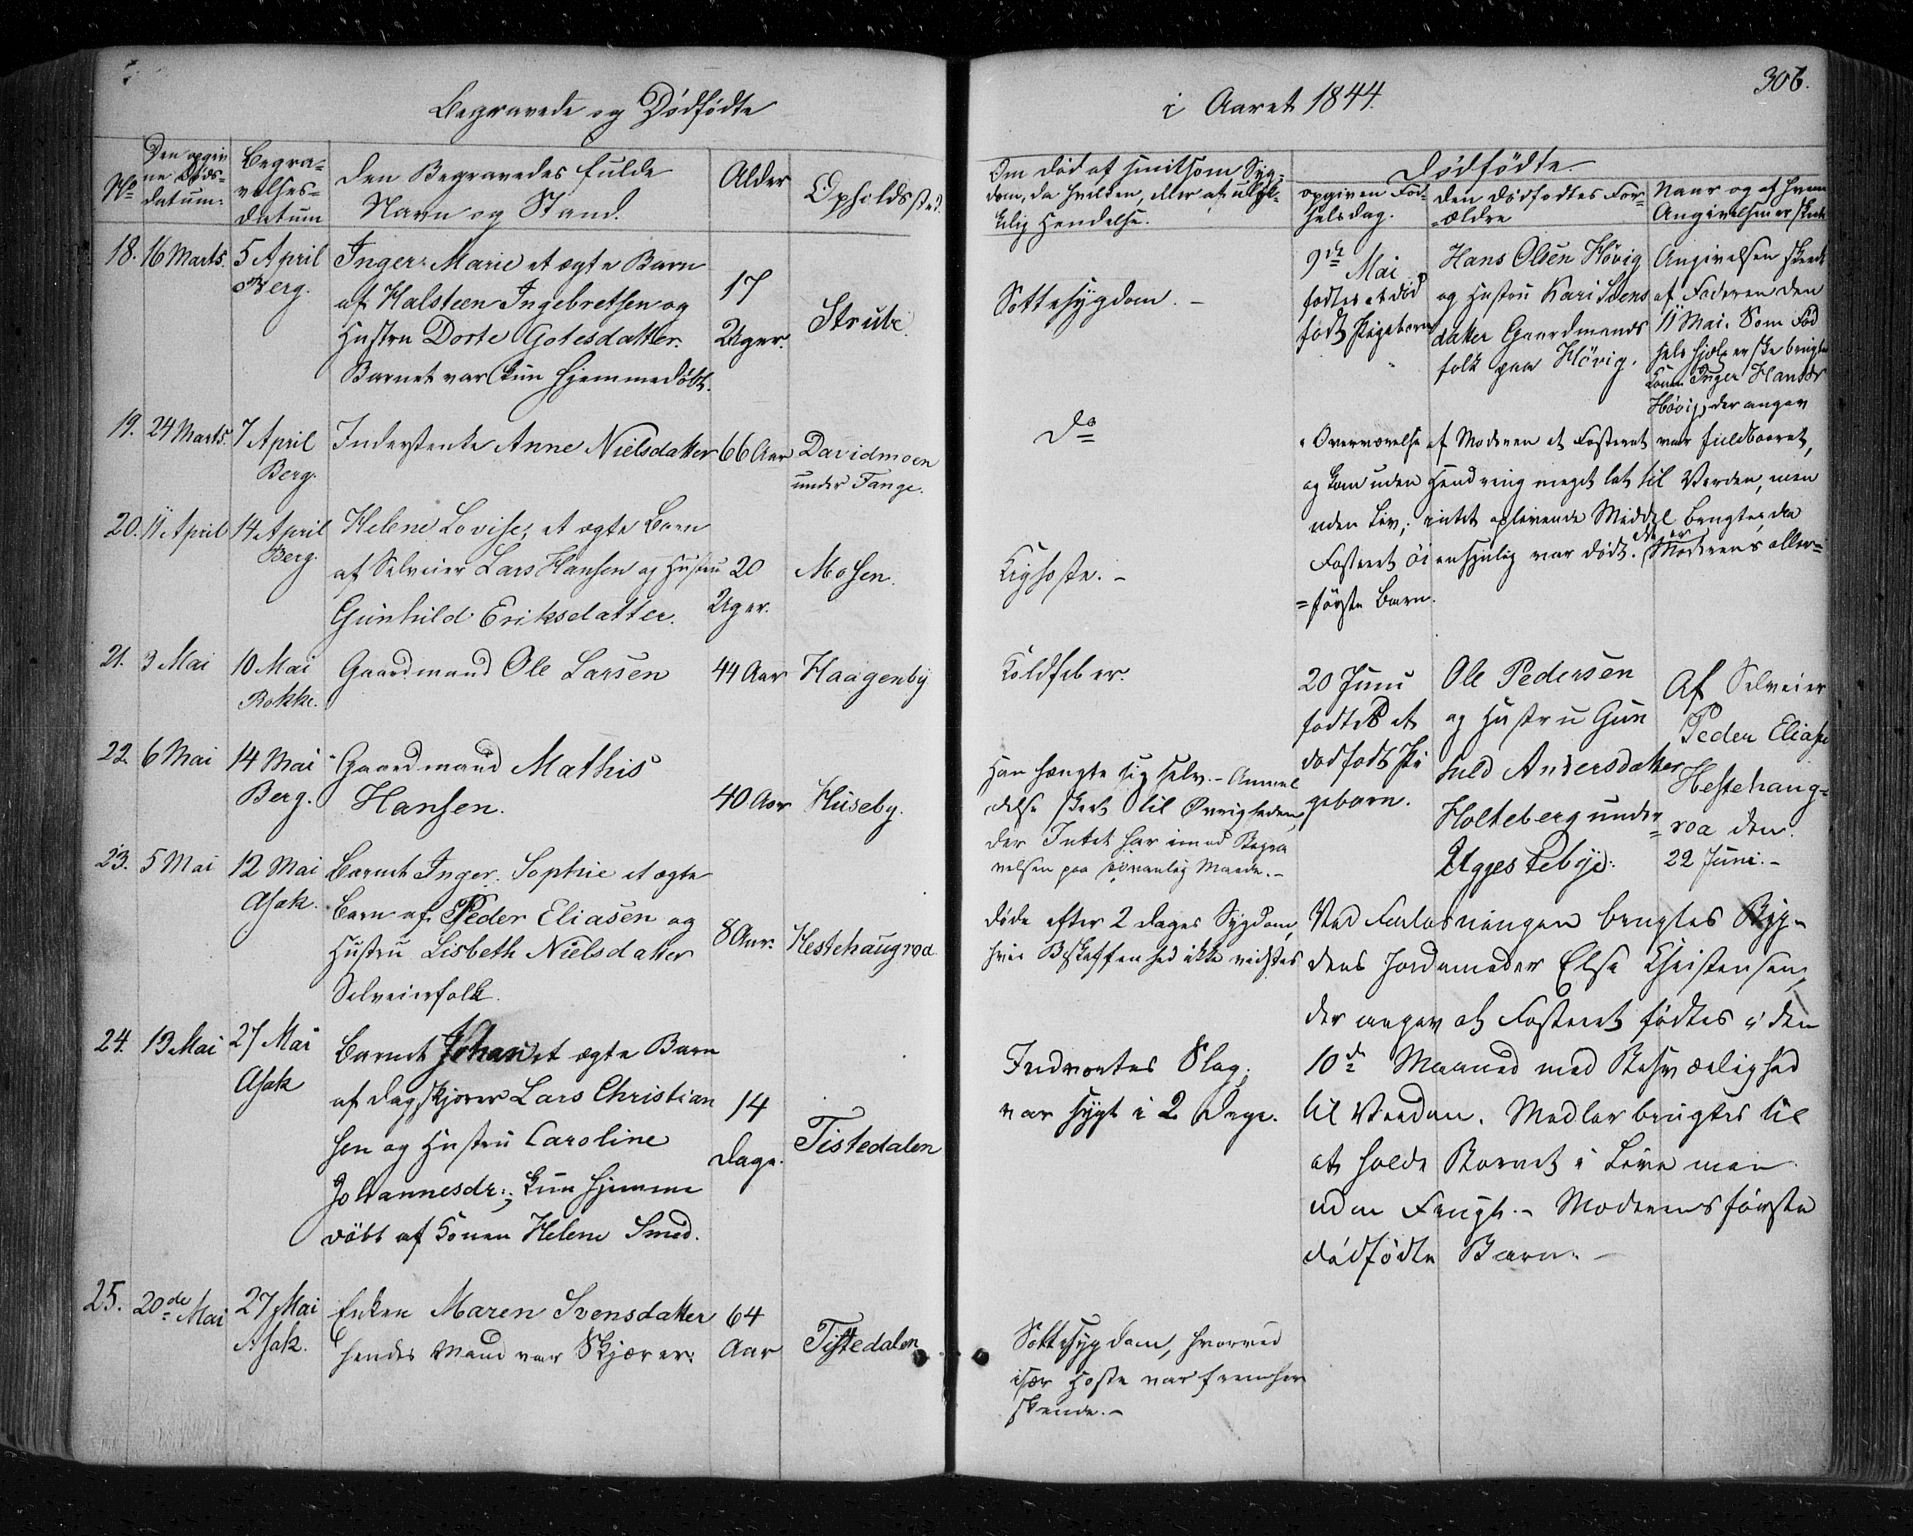 Begravede og Dødfødte
i Aaret 1844.
306.
No
Den opgiv
ne Døds-
datum.
Begra-
velses-
datum
Den Begravedes fulde
Navn og Stand.
Alder
Opholdssted.
Om død af smitsom Syg-
dom, da hvilken, eller af ulyk-
kelig Hendelse.
Dødfødte.
opgiven Fød-
selsdag.
den dødfødtes For-
-ældre
Naar og af hvem
Angivelsen er skeet
18. 16 Marts. 5 April
Berg.
Inger Marie et ægte Barn
af Halsteen Ingebretsen og
Hustru Dorte Gotesdatter.
Barnet var kun hjemmedøbt.
17
Uger.
Strube.
Sottesygdom. -
9de Mai
fødtes et død
født Pigebarn
Hans Olsen Høvig
og Hustru Kari Svens
datter Gaardmands
folk paa Høvig.
Angivelsen skeede
af Faderen den
11 Mai. Som Fød
selshjelperske brugtes
Konen Inger Hansdr
Høvig, der angav
19. 24 Marts. 7 April
Berg.
Inderstenke Anne Nielsdatter
66 Aar
Davidmoen
under Tange.
Do
i Overværelse af Moderen at Fosteret var fuldbaaret,
og kom uden Hendring meget let til Verden, men
uden Liv; intet oplivende Middel brugtes, da
Fosteret øiensynlig var dødt. Det er Moderens aller-
=første Barn.
20. 11 April 14 April
Berg.
Helene Lovise, et ægte Barn
af Selveier Lars Hansen og Hustru
Gunhild Eriksdatter.
20
Uger.
Mosen.
Kighoste. -
21. 3 Mai 10 Mai
Rokke.
Gaardmand Ole Larsen
44 Aar
Haagenby
Koldfeber.
20 Juni
fødtes et
dødfødt Pi
gebarn.
Ole Pedersen
og Hustru Gun
hild Andersdatter
Holteberg under
Uggestebye.
Af Selveier
Peder Elias
Hestehaug-
roa den
22 Juni. -
22. 6 Mai 14 Mai
Berg.
Gaardmand Mathis
Hansen.
40 Aar
Huseby.
Han hængte sig selv. - Anmel
delse skeet til Øvrigheden,
der Intet har imod Begra
velsen paa sædvanlig Maade. -
23. 5 Mai 12 Mai
Asak.
Barnet Inger Sophie et ægte
Barn af Peder Eliasen og
Hustru Lisbeth Nielsdatter
Selveierfolk.
8 Aar.
Hestehaugroa
døde efter 2 Dages Sygdom,
hvis Beskaffenhed ikke vidstes
Ved Forløsningen brugtes Byg-
dens Jordemoder Else Christensen,
der angav at Fosteret fødtes i den
10de Maaned med Besværlighed
til Verden. Midler brugtes til
at holde Barnet i Live men
uden Frugt. - Moderens første
dødfødte Barn. -
24. 13 Mai 27 Mai
Asak
Barnet Johan et ægte Barn
af Dagskjører Lars Christian
sen og Hustru Caroline
Johannesdr.; kun hjemme
døbt af Konen Helene Smed.
14
Dage.
Tistedalen
Indvortes Slag,
var sygt i 2 Dage.
25. 20de Mai 27 Mai
Asak.
Enken Maren Svensdatter
hendes Mand var Skjærer.
64
Aar
Tistedalen
Sottesygdom, hvorved
især Hoste var fremher
skende. -